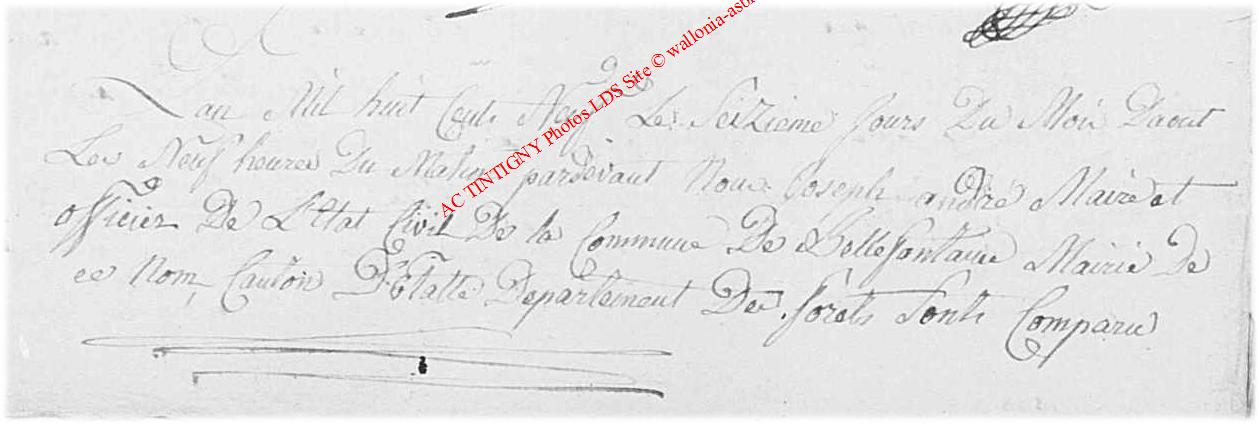 Lan Mil huit Cents Neuf Le Seizieme Jours Du Mois Daout
Les Neuf heures Du Matin pardevant Nous Joseph andré Maire et
officier De L'Etat Civil De la Commune De Bellefontaine Mairie De
ce Nom, Canton D'Etalle Departement Des forets Sont Comparu
AC TINTIGNY Photos LDS Site © wallonia-asb